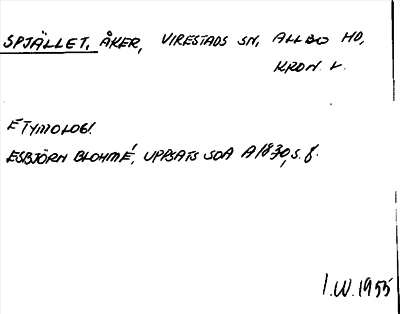 SPJÄLLET, ÅKER, VIRESTADS SN, ALLBO HD,
KRON. L.
ETYMOLOGI.
ESBJÖRN BLOHMÉ, UPPSATS SOA A1830, S. 8.
I.W. 1955